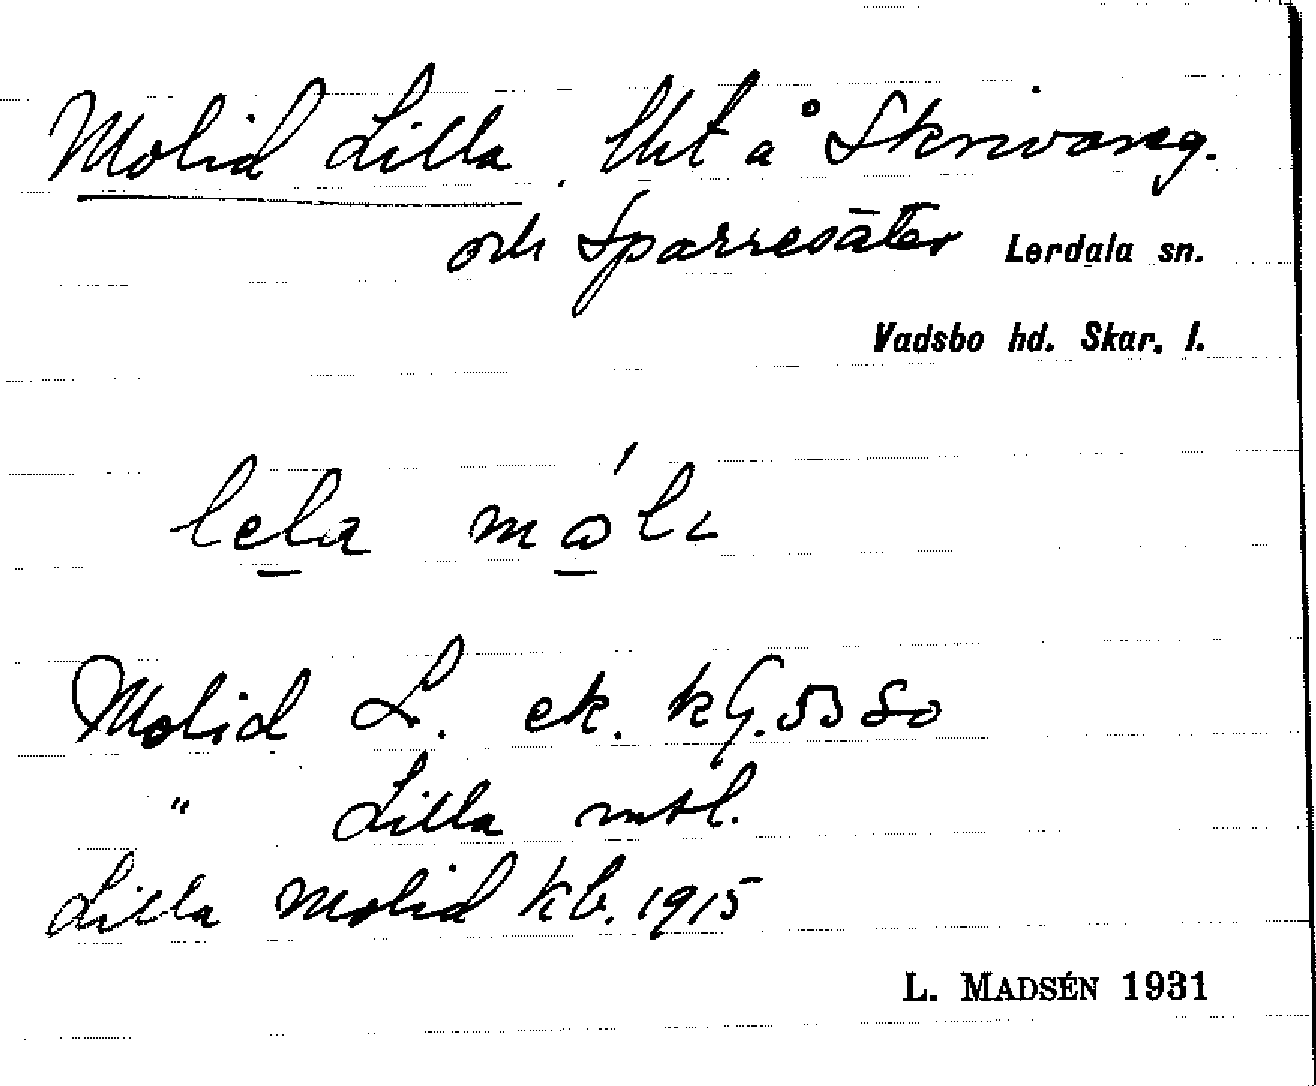 Molid Lilla. Lht å Skrivareg.
och Sparresäter Lerdala sn.
Vadsbo hd. Skar. l.
lela mo̲lɩ
Molid L. ek. kG. 53 So
" Lilla mtl.
Lilla Molid kb. 1915
L. MADSÉN 1931